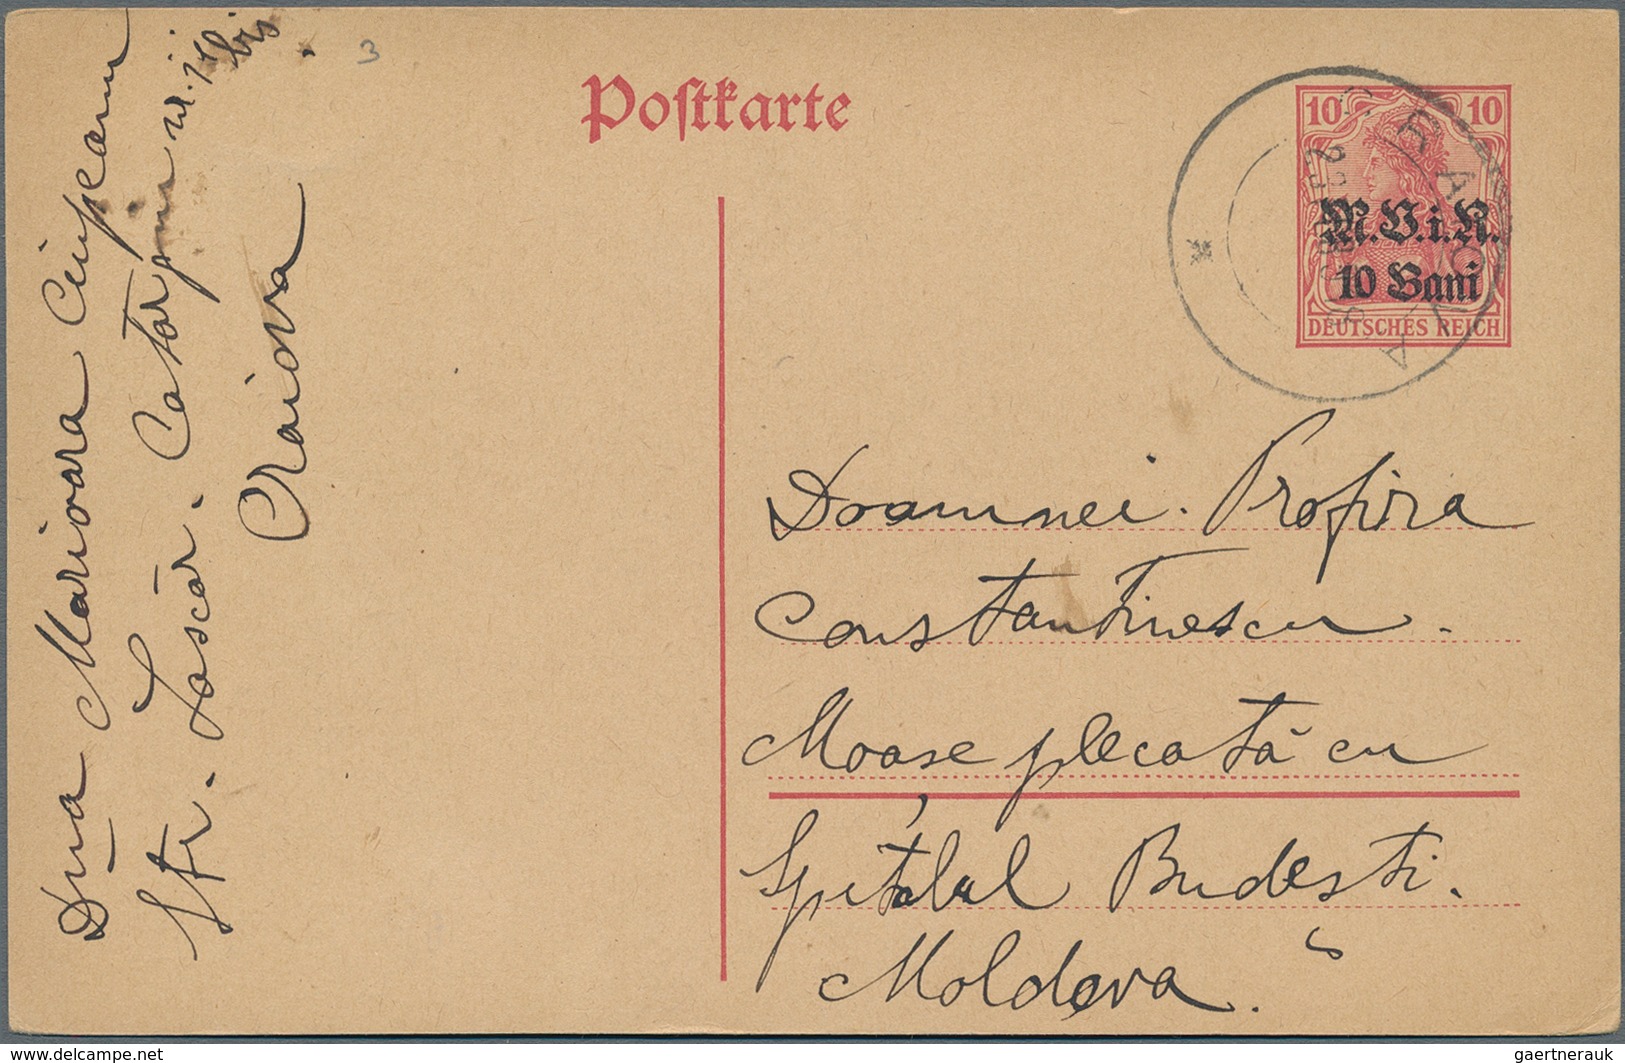 Postkarte
3
10 10
M.V.i.R.
10 Bani
DEUTSCHES REICH
CRAIOVA
Dna Marioara Cimpeanu
Str. Lascăr. Catargiu nr.
bis
Craiova
Doamnei. Profira
Constantinescu.
Moașe plecată cu
Spitalul Budești.
Moldova.
www.delcampe.net
gaertnerauk